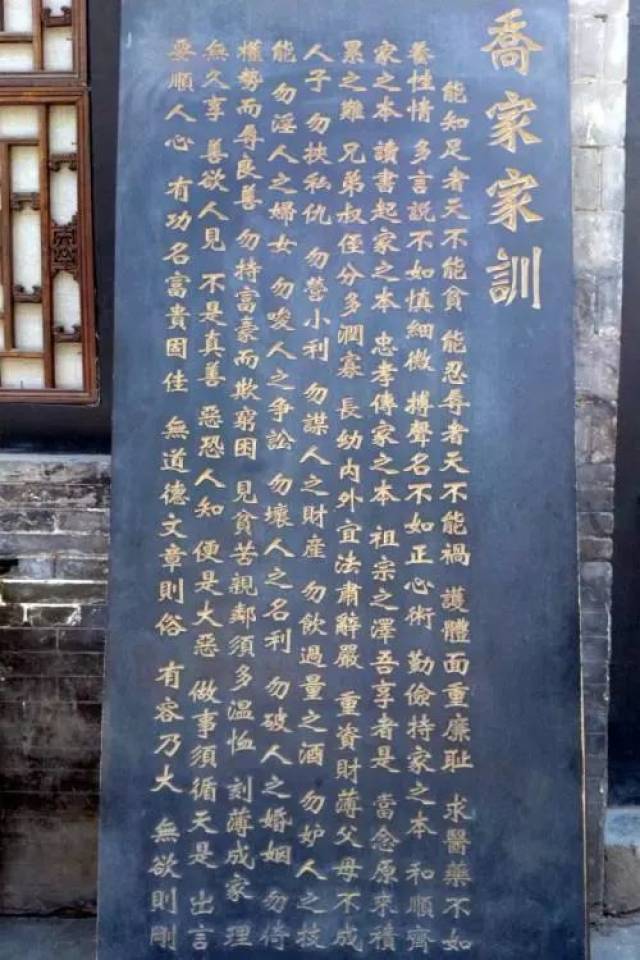 喬家家訓
能知足者天不能貧 能忍辱者天不能禍 護體面重廉耻 求醫藥不如
養性情 多言説不如慎細微 搏聲名不如正心術 勤儉持家之本 和順齊
家之本 讀書起家之本 忠孝傳家之本 祖宗之澤吾享者是 當念原來積
累之難 兄弟叔侄分多潤寡 長幼內外宜法肅辭嚴 重資財薄父母不成
人子 勿挾私仇 勿營小利 勿謀人之財産 勿飲過量之酒 勿妒人之技
能 勿淫人之婦女 勿唆人之爭訟 勿壞人之名利 勿破人之婚姻 勿倚
權勢而辱良善 勿持富豪而欺窮困 見貧苦親鄰須多温恤 刻薄成家 理
無久享 善欲人見 不是真善 惡恐人知 便是大惡 做事須循天是 出言
要順人心 有功名富貴固佳 無道德文章則俗 有容乃大 無欲則剛